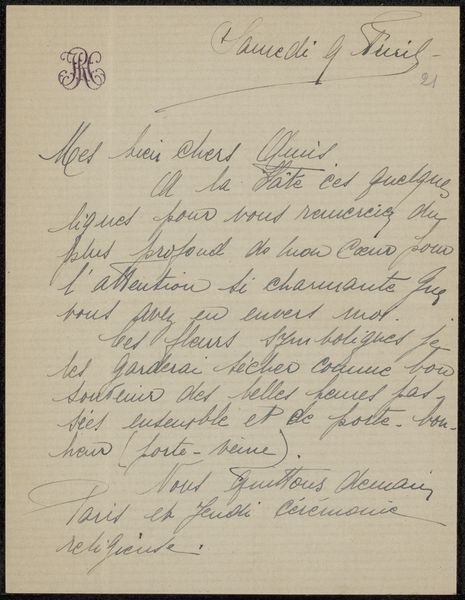 Samedi 9 Avril
21
Mes bien chers Amis
A la hâte ces quelques
lignes pour vous remercier du
plus profond de mon cœur pour
l'attention si charmante que
vous avez eu envers moi.
Ces fleurs symboliques je
les garderai sécher comme bon
souvenir des belles heures pas-
sées ensemble et de porte-bon-
heur (porte-veine).
Nous quittons demain
Paris et Jeudi cérémonie
religieuse.